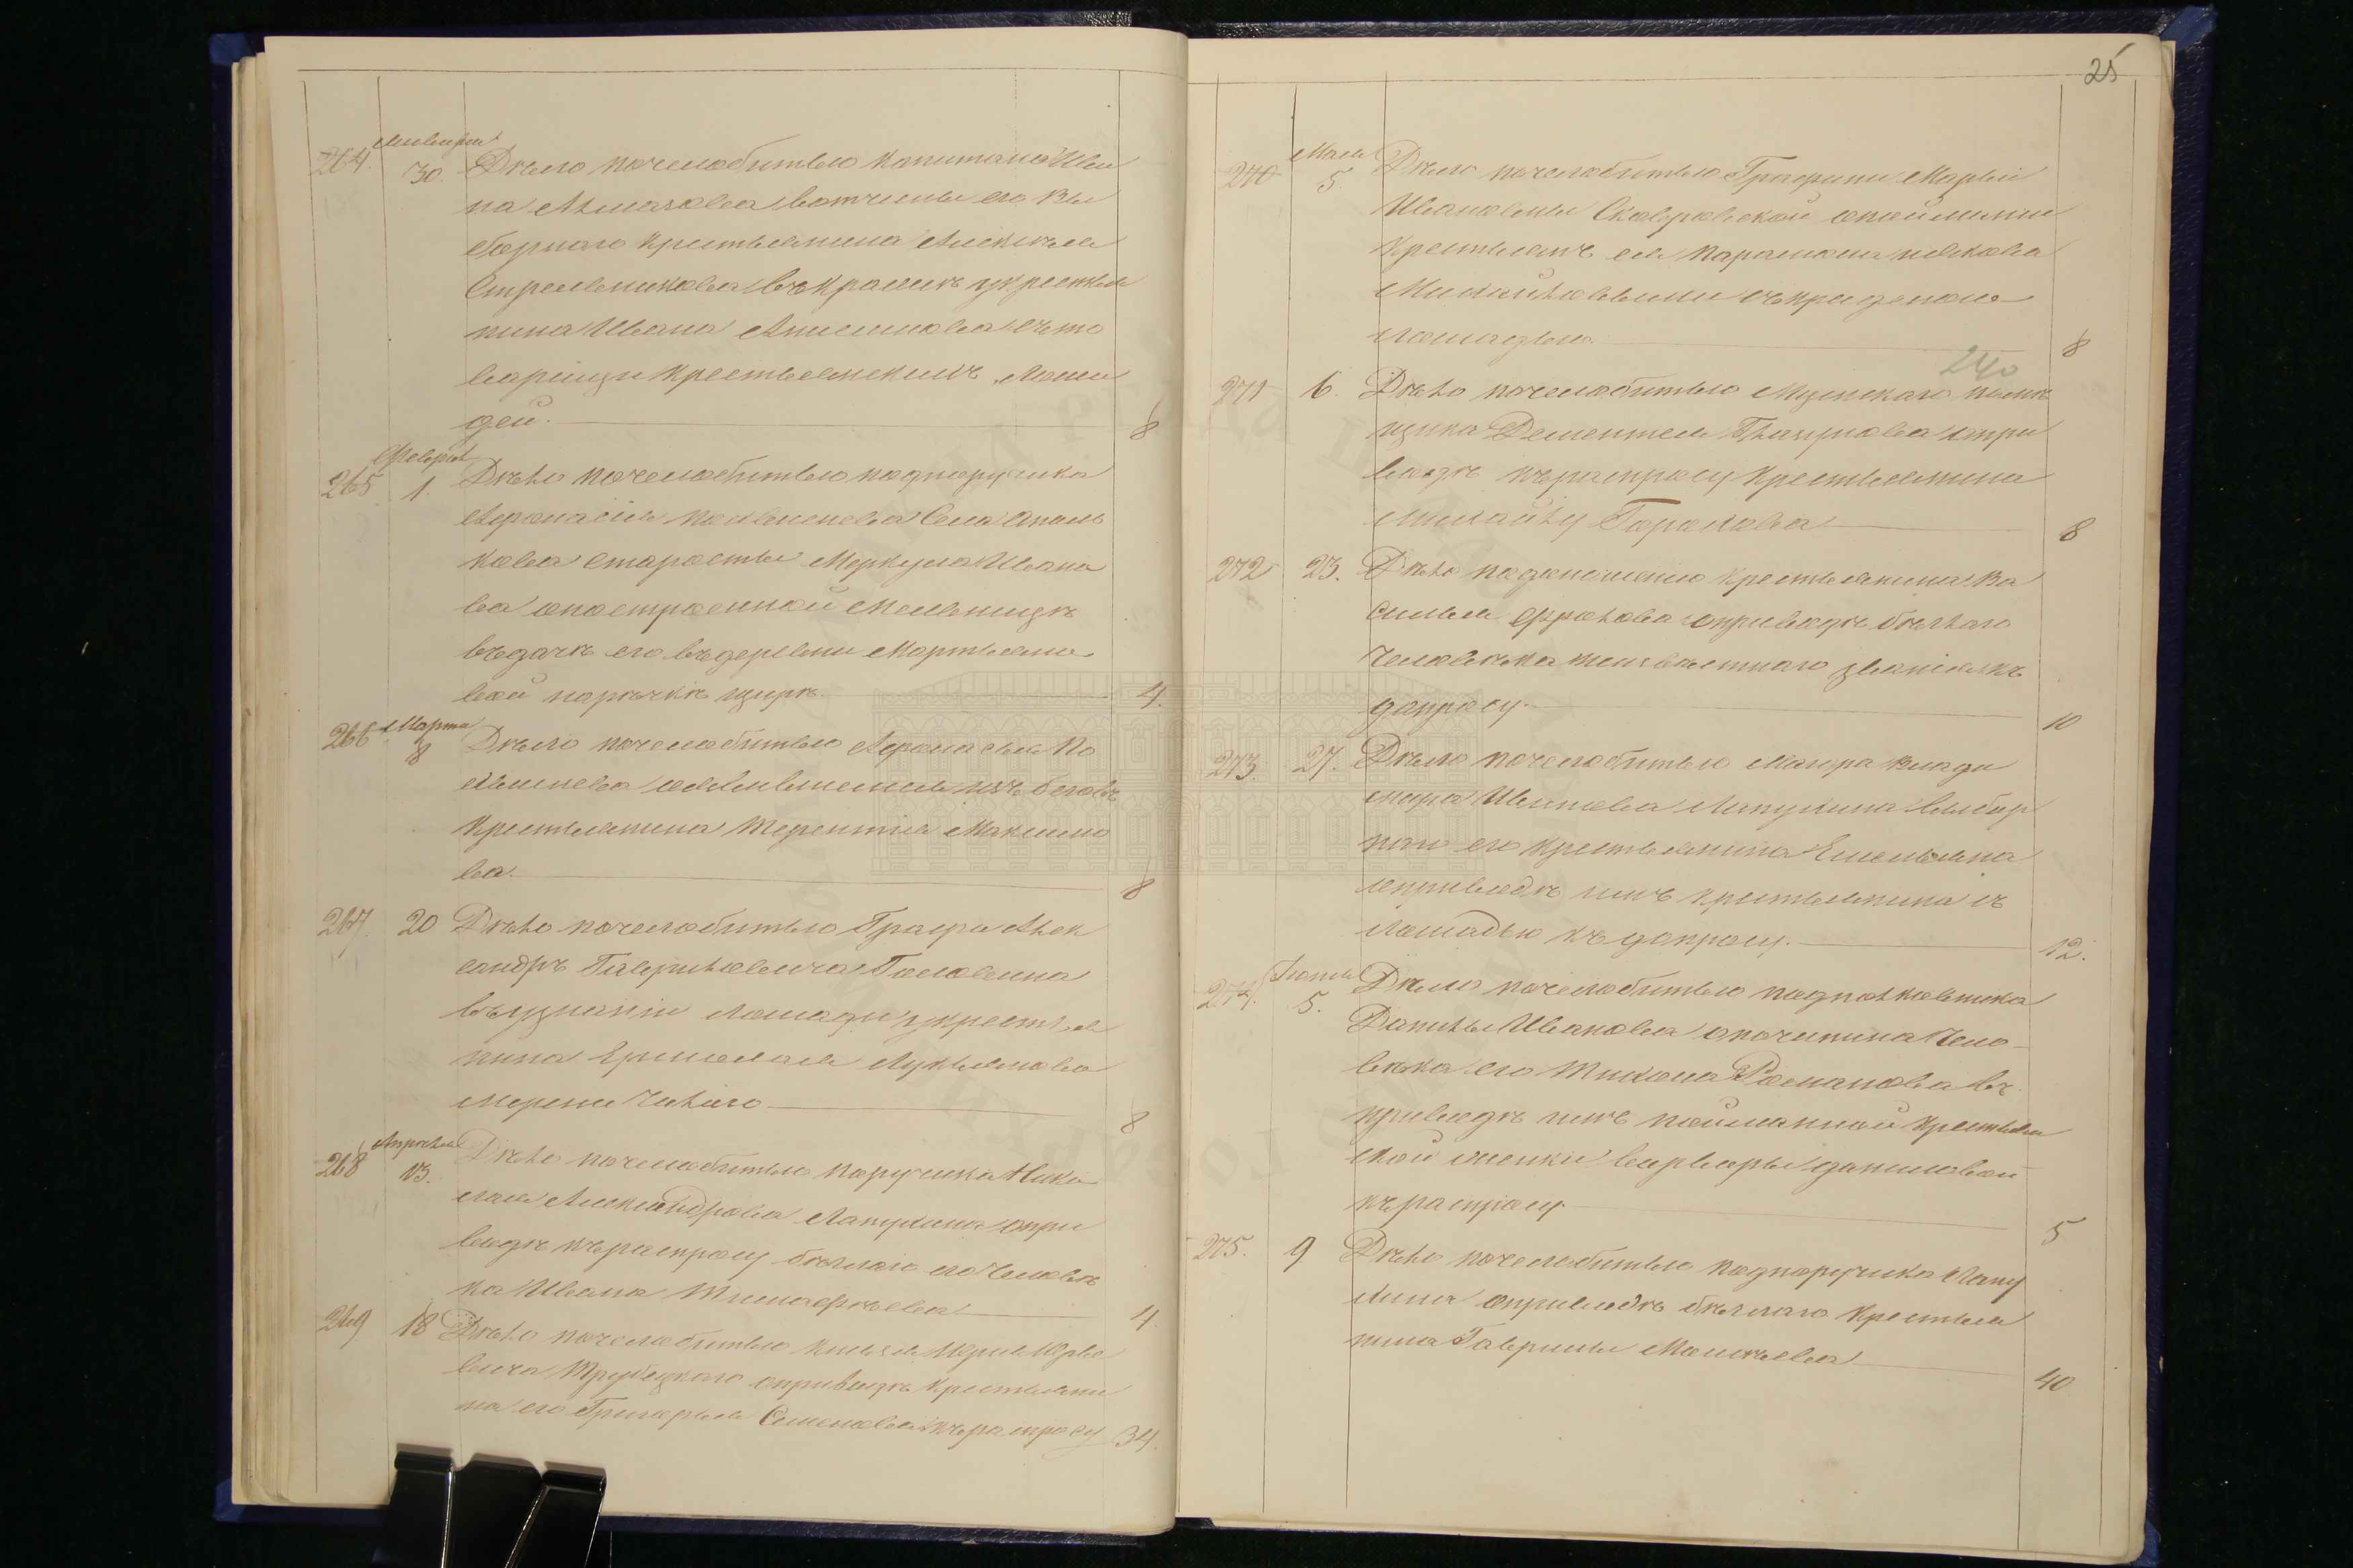 25
264. Января 30. Дѣло почелобитью капитана Ива
на Алмазова вотчины его вы
борнаго крестьянина Алексѣя
Стрельникова въ кражѣ у крестья
нина Ивана Анисимова съ то
варищи крестьянскихъ лоша
дей. 8
265 Февраля 1. Дѣло почелобитью подпоручика
Афонасія Села
старосты Меркула Ивано
ва опостроенной мельницѣ
въдачѣ его въ деревни Мартьяно
вой нарѣчкѣ 4.
266 Марта 8 Дѣло почелобитью Афонасья По
изъ беговъ
крестьянина Терентія Максимо
ва. 8
267. 20 Дѣло почелобитью Графа Алек
сандръ Гавриловича Головкина
въузнаніи лошади у крестья
нина Ермолая Лукьянова
мерена 8
268 Апреля 13. Дѣло почелобитью поручика Нико
лая Александрова Лапухина опри
водѣ къраспросу бѣглаго его человѣ
ка Ивана Тимофѣева 4.
269 18 Дѣло почелобитью князя Юрья Юрье
вича Трубецкаго оприводѣ крестьяни
на его Григорья Семенова къраспросу 34.
270 Мая 5. Дѣло почелобитью Графини Марьи
Ивановны Скавронской опоимании
крестьянъ ея
Михайловыми съкраденою
лошадью. 8
240
271 6. Дѣло почелобитью помѣ
щика Дементея опри
водѣ къраспросу крестьянина
Михайлу Горохова 8
272 23. Дѣло подоношению крестьянина Ва
силья Фролова оприводѣ бѣглаго
человѣка неизвѣстнаго званія къ
допросу. 10
273. 27. Дѣло почелобитью маіора Влади
мира Иванова Лапухина выбор
наго его крестьянина Емельяна
оприводѣ имъ крестьянина съ
лошадью къ допросу. 12.
274. Іюня 5. Дѣло почелобитью подполковника
Данилы Иванова опочинина чело
вѣка его Тихона Романова въ
приводѣ имъ пойманной крестьян
ской женки варвары даниловой
къраспросу. 5
275. 9 Дѣло почелобитью подпоручика Лапу
хина оприводѣ бѣглаго крестья
нина Гаврилы Моисѣева 40